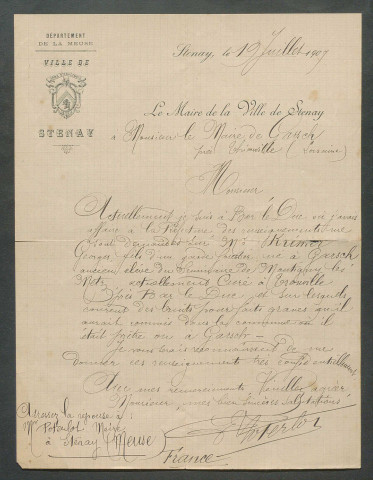 DÉPARTEMENT
DE LA MEUSE
VILLE DE
STENAY
Stenay, le 19 Juillet 1907
Le Maire de la Ville de Stenay
à Monsieur le Maire de Garsch
près Thionville (Lorraine)
Monsieur
Actuellement je suis à Bar le Duc où j'avais
affaire à la Préfecture des renseignements me
sur Mr Kremer
Georges fils d'un garde né à Garsch
ancien élève du Séminaire de Montigny les
Metz actuellement Curé à
Bar le Duc et sur lesquels
courent des bruits pour faits graves qu'il
aurait commis dans la commune où il
était ou à Garsch
Je vous serais reconnaissant de me
donner ces renseignements très confidentiellement
Avec mes remerciements Veuillez agréer
Monsieur, mes bien sincères salutations
Adresser la réponse à
Mr Poterlot Maire
à Stenay (Meuse)
Poterlot
France